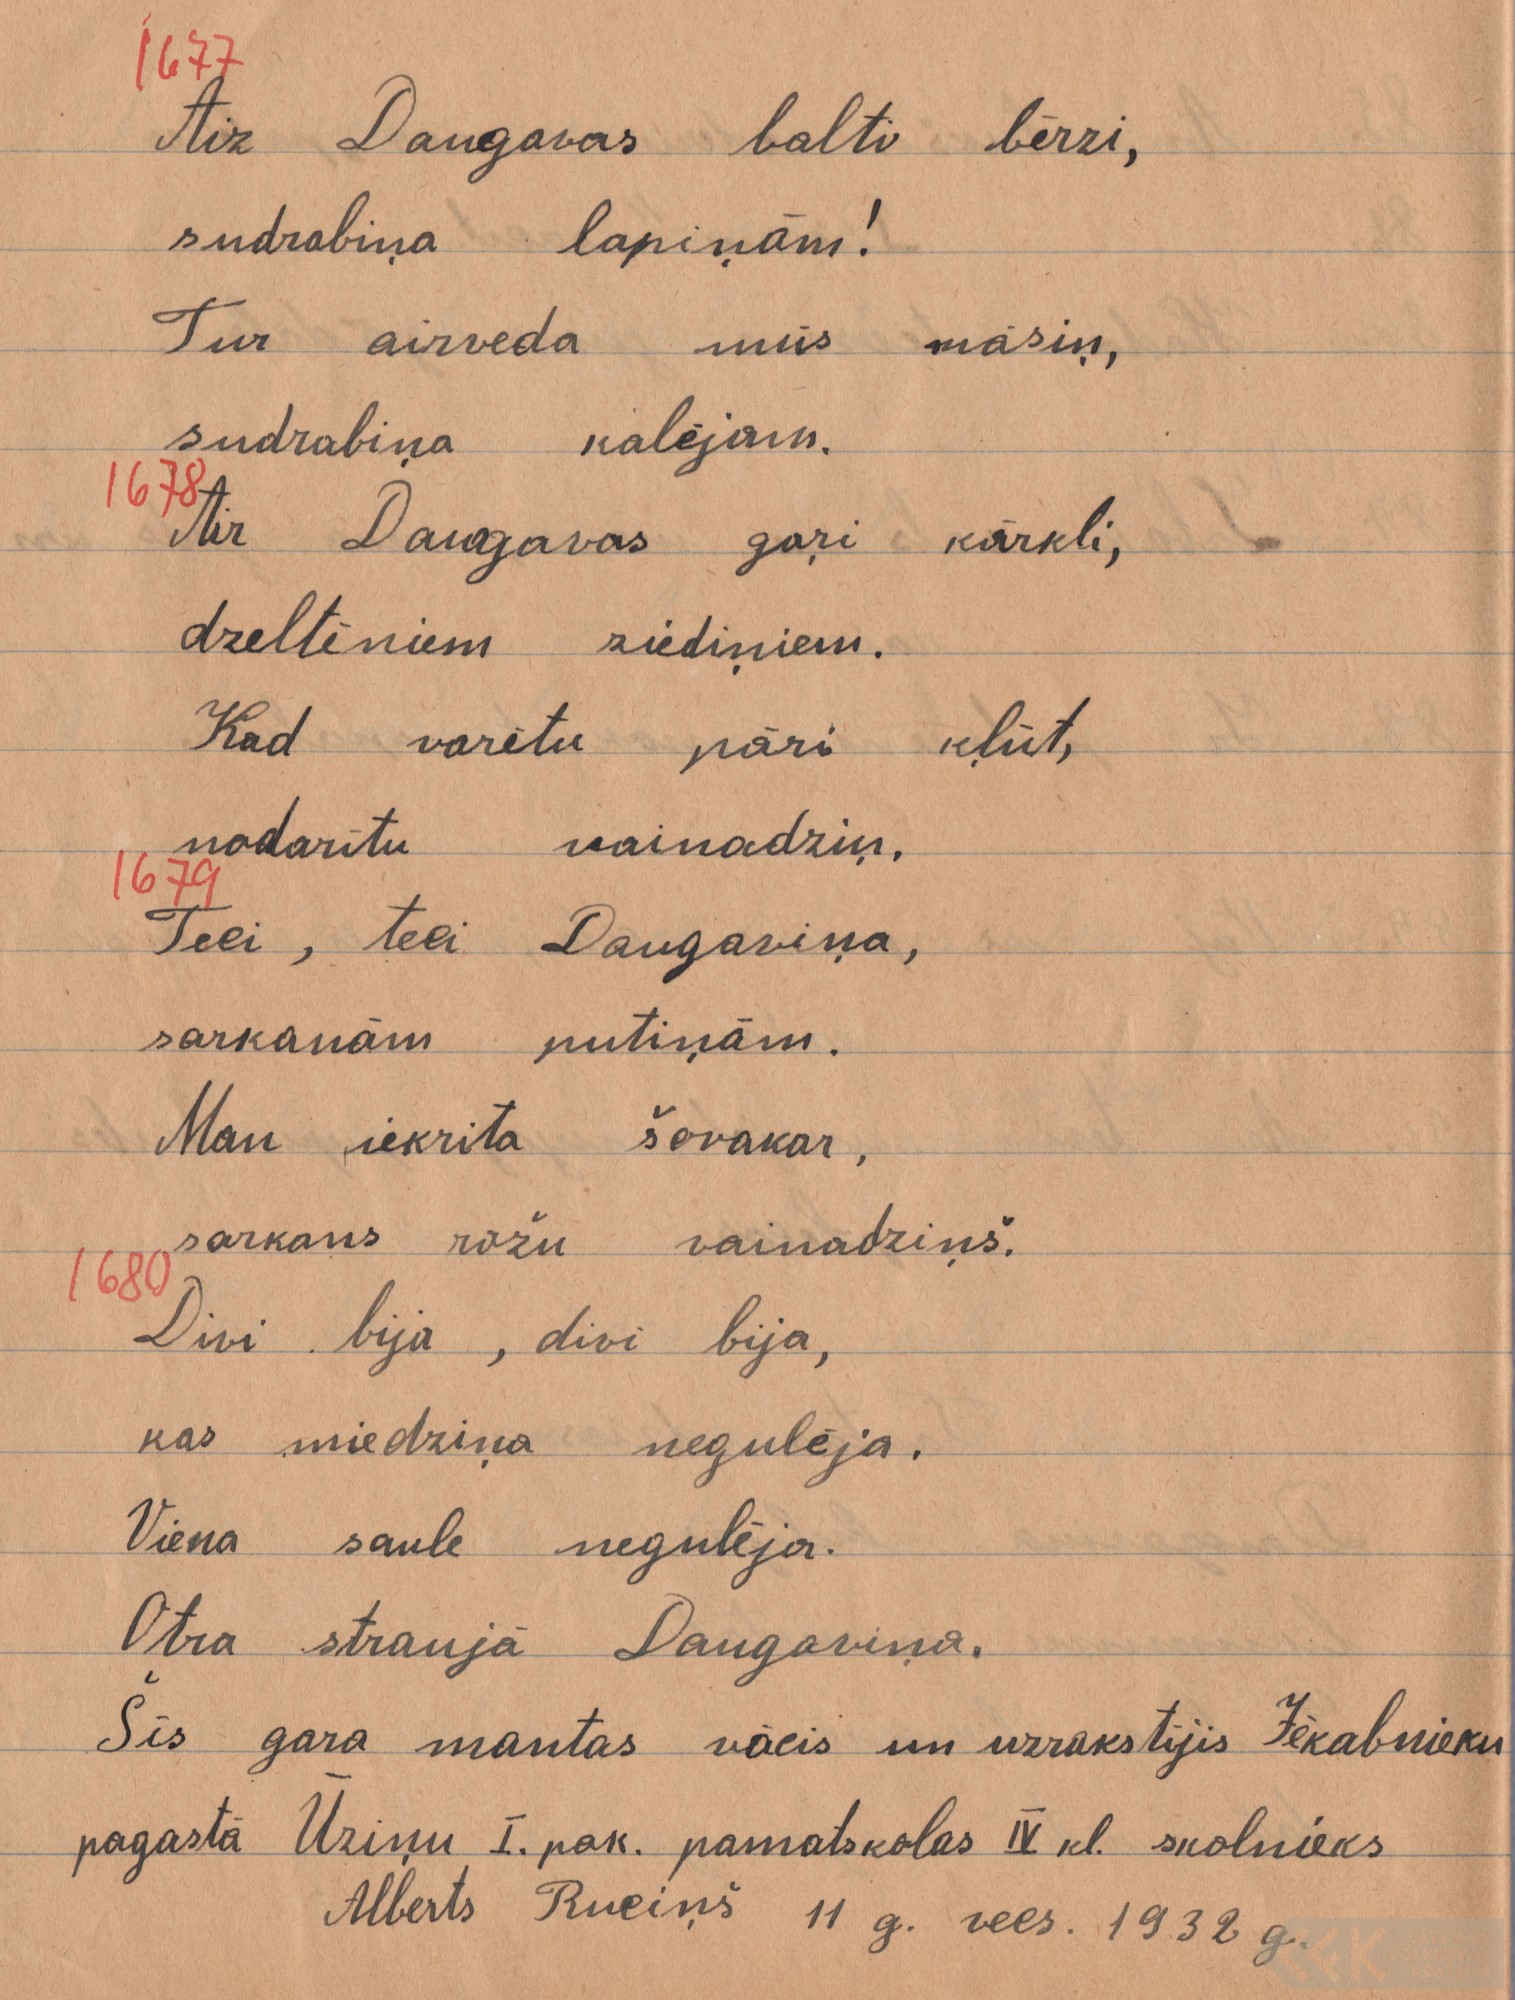 1677
Aiz Daugavas balti bērzi,
sudrabiņa lapiņām!
Tur aizveda mūs māsiņ,
sudrabiņa kalējam.
1678
Aiz Daugavas gaŗi kārkli,
dzeltēniem ziediņiem.
Kad varētu pāri kļūt,
nodarītu vainadziņ.
1679
Teci, teci Daugaviņa,
sarkanām putiņām.
Man iekrita šovakar,
sarkans rožu vainadziņš.
1680
Divi bija, divi bija,
kas miedziņa negulēja.
Viena saule negulēja.
Otra straujā Daugaviņa.
Šīs gara mantas vācis un uzrakstījis Jēkabnieku
pagastā Ūziņu I. pak. pamatskolas IV kl. skolnieks
Alberts Ruciņš 11 g. vecs. 1932 g.